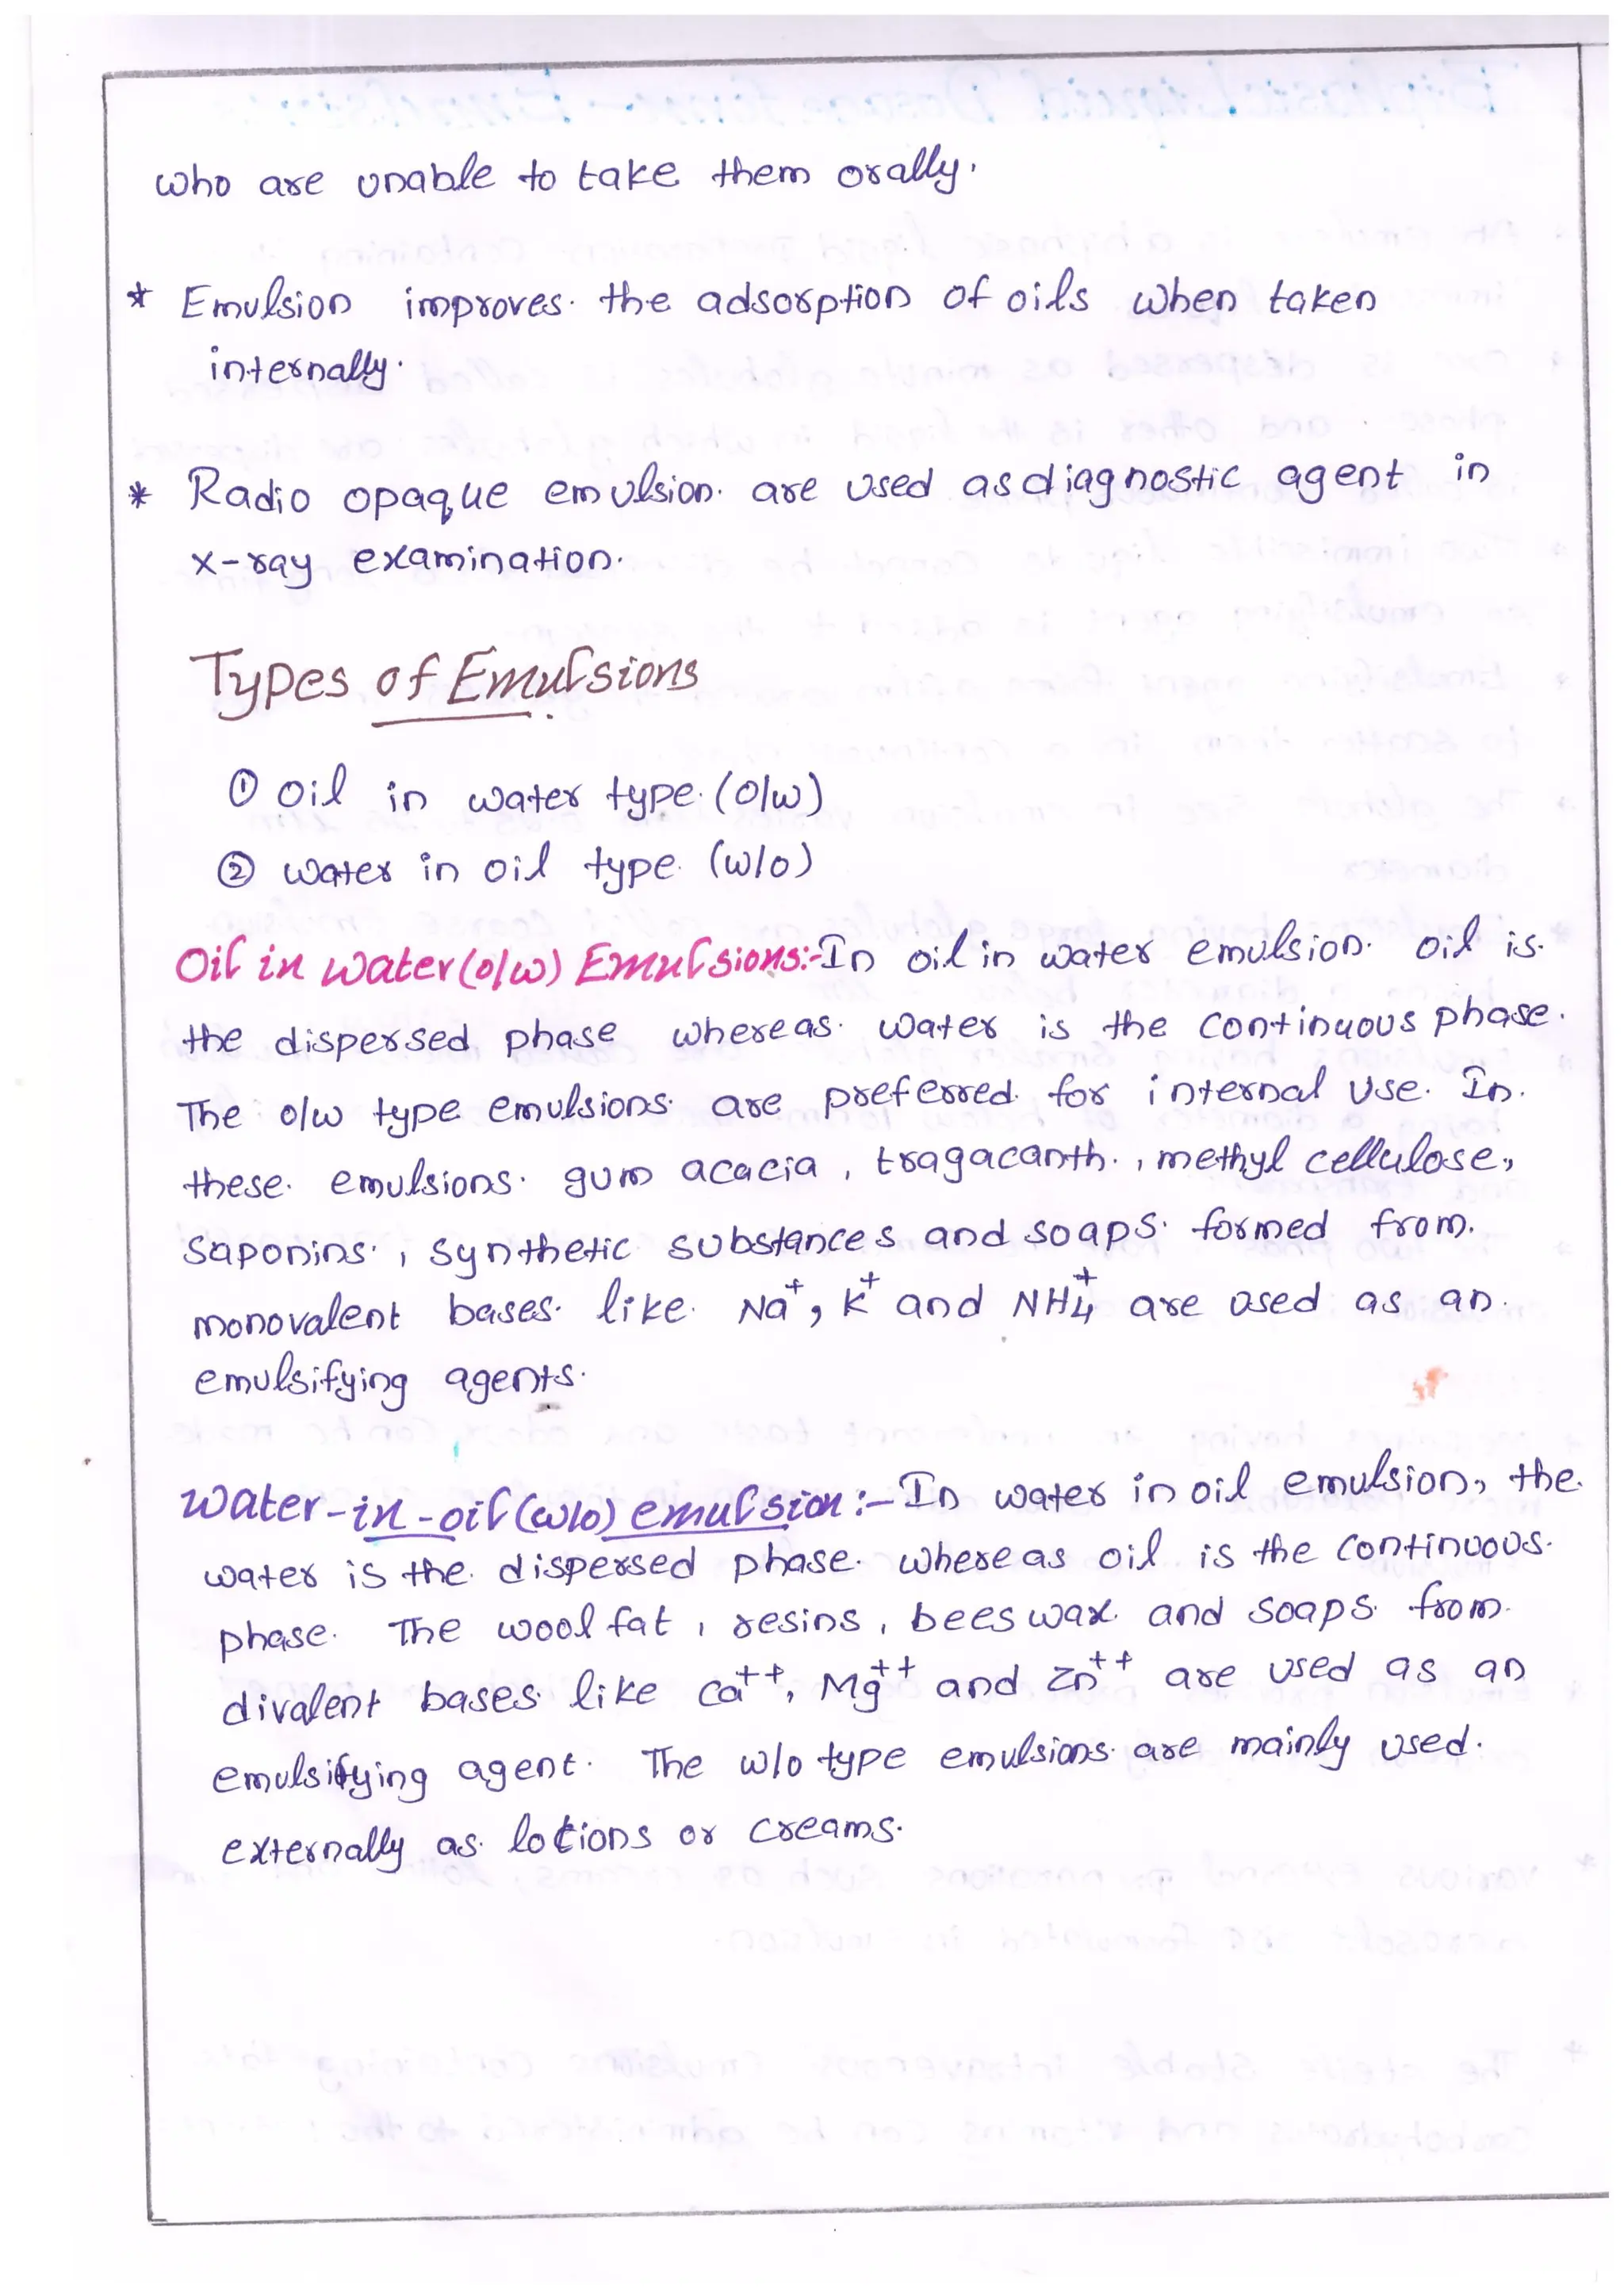 who are unable to take them orally.
* Emulsion improves the adsorption of oils when taken
internally.
* Radio opaque emulsion are used as diagnostic agent in
x-ray examination.
Types of Emulsions
① oil in water type (o/w)
② water in oil type (w/o)
Oil in water (o/w) Emulsions:- In oil in water emulsion oil is
the dispersed phase whereas water is the continuous phase.
The o/w type emulsions are preferred for internal use. In
these emulsions gum acacia, tragacanth, methyl cellulose,
saponins, synthetic substances and soaps formed from
monovalent bases like Na⁺, K⁺ and NH₄⁺ are used as an
emulsifying agents.
Water-in-oil (w/o) emulsion:- In water in oil emulsion, the
water is the dispersed phase whereas oil is the continuous
phase. The wool fat, resins, bees wax and soaps from
divalent bases like Ca⁺⁺, Mg⁺⁺ and Zn⁺⁺ are used as an
emulsifying agent. The w/o type emulsions are mainly used
externally as lotions or creams.